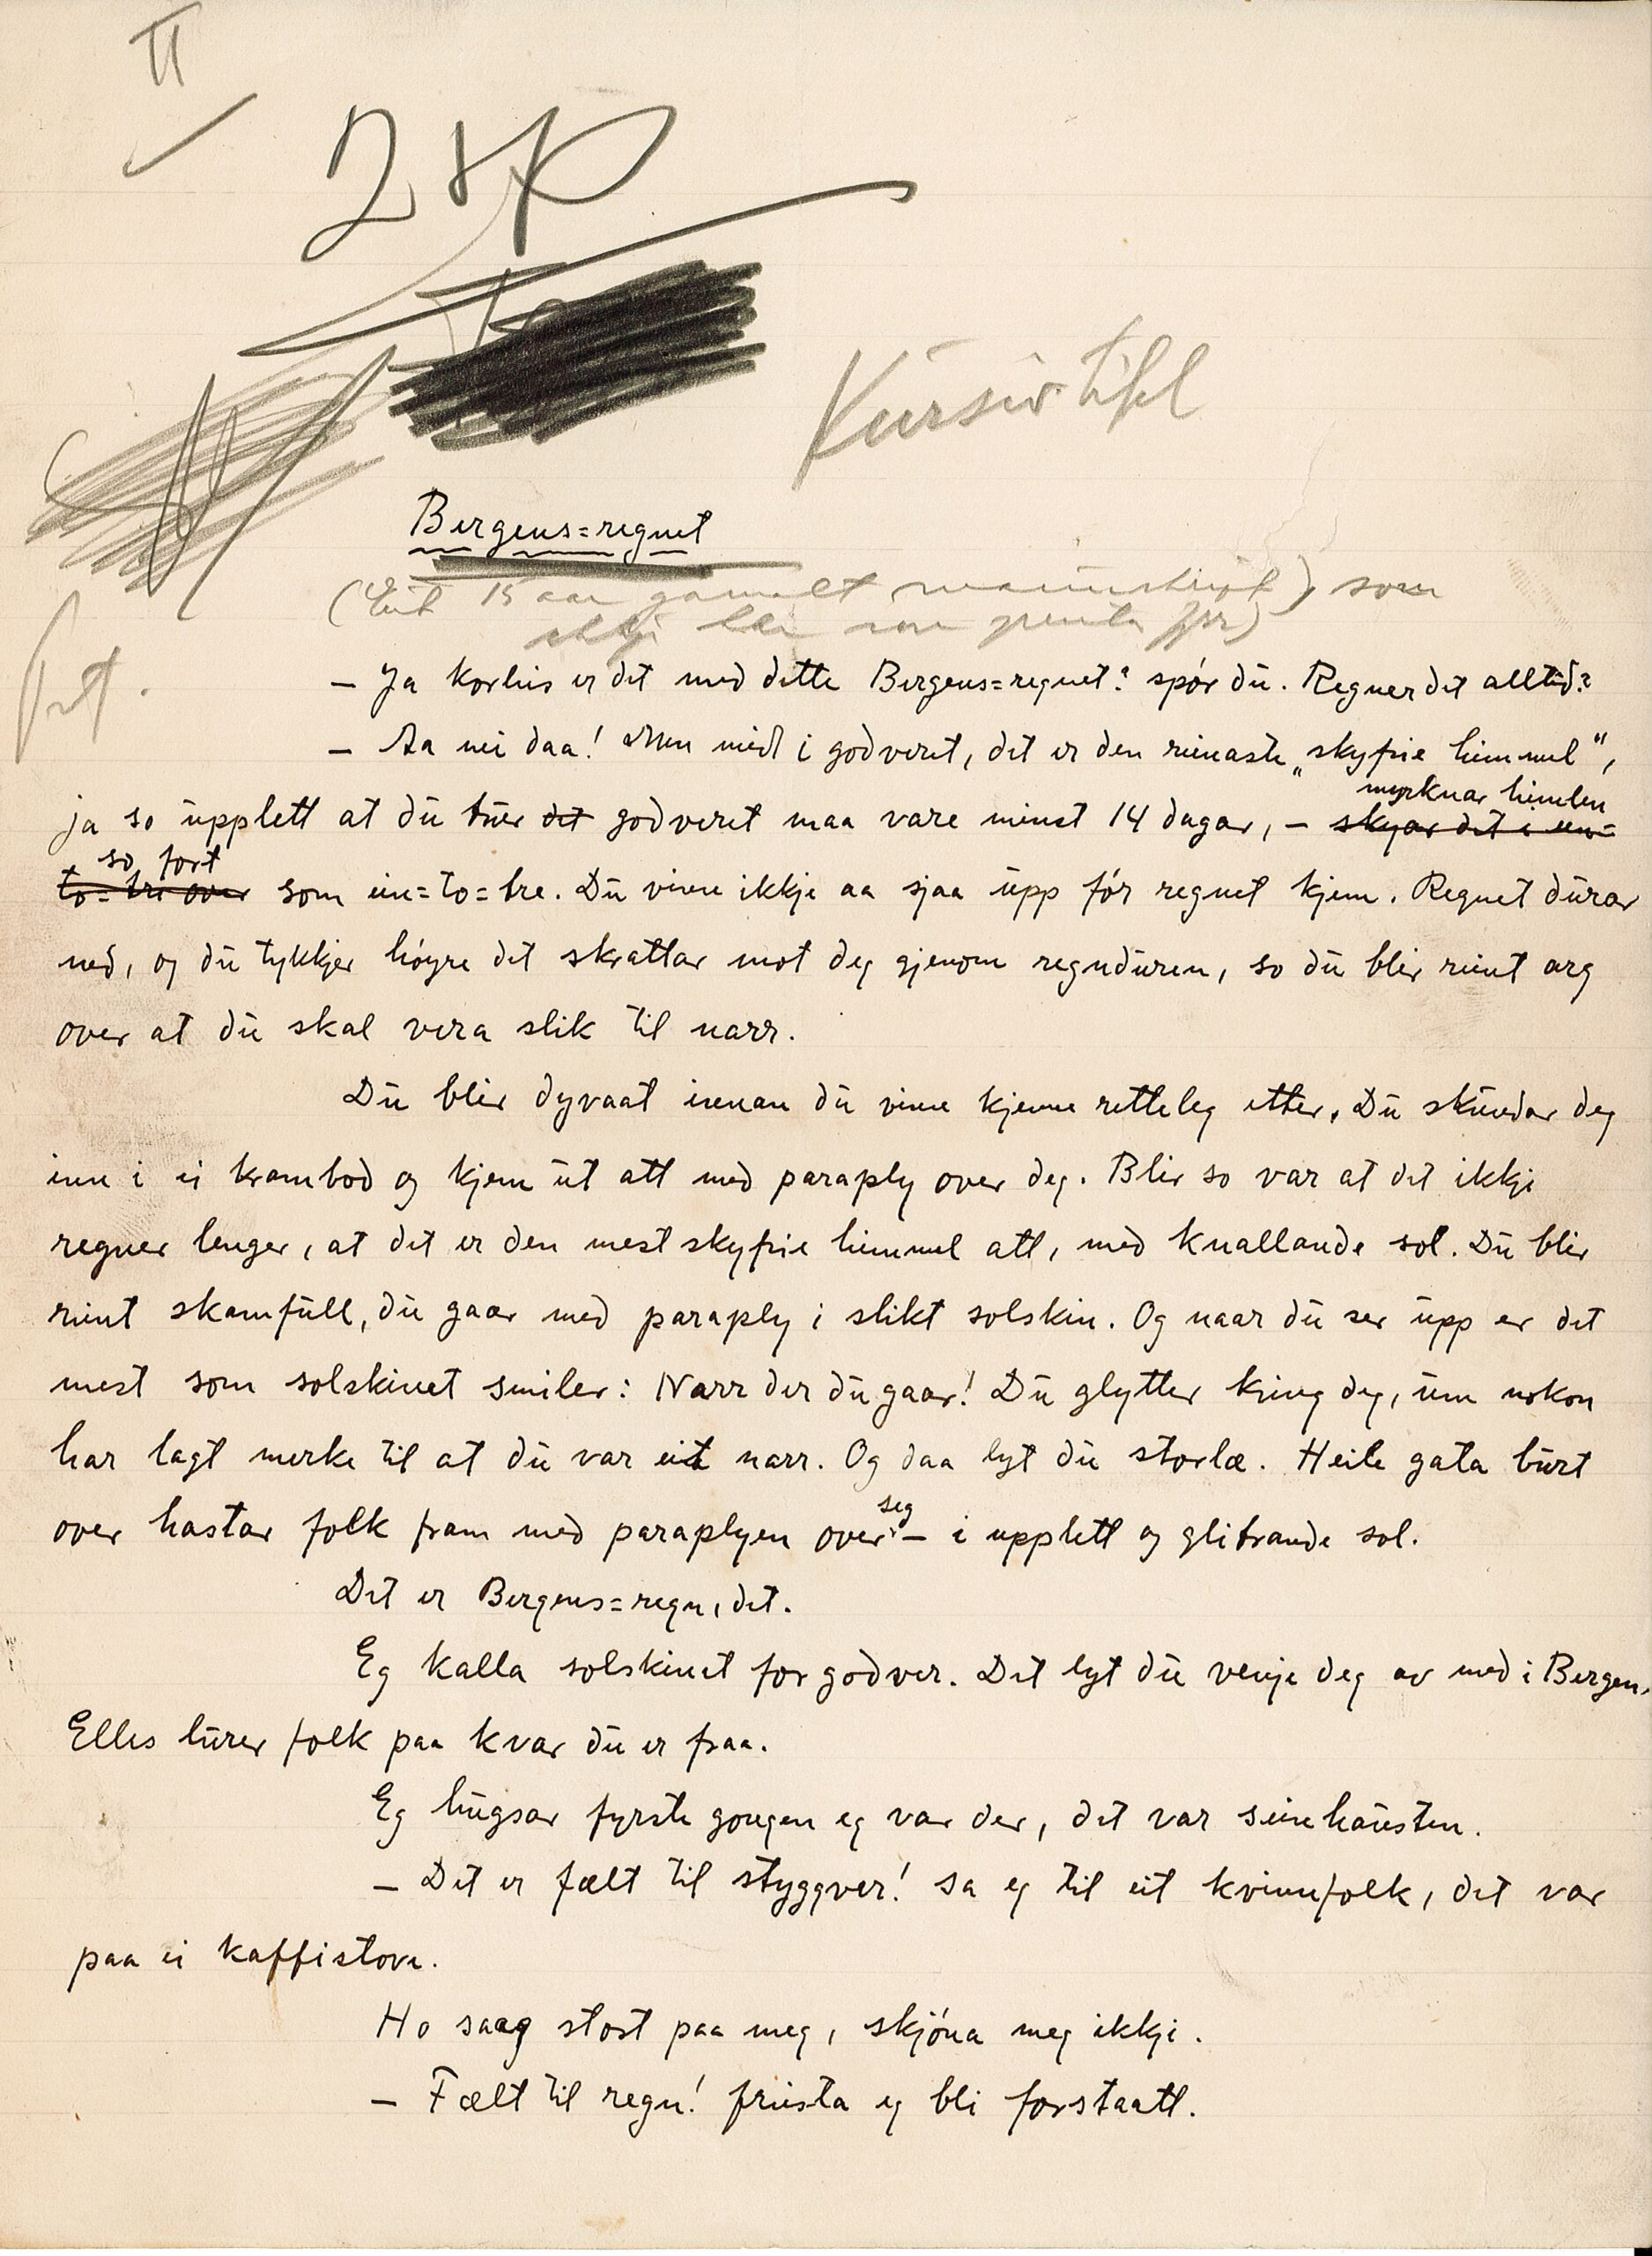 II
2 sp
Kursiv titel
Bergens=regnet
(Eit 15 aar gamalt manuskript, som
ikkje har vore prenta før)
Pet.
— Ja korleis er det med dette Bergens=regnet? spør du. Regner det alltid?
— Aa nei daa! Men midt i godveret, det er den reinaste „skyfrie himmel",
myrknar himlen
ja so upplett at du trur det godveret maa vare minst 14 dagar, — skyar det i ein=
so fort
to=tre over som ein=to=tre. Du vinn ikkje aa sjaa upp før regnet kjem. Regnet durar
ned, og du tykkjer høyre det skrattar mot deg gjenom regnduren, so du blir reint arg
over at du skal vera slik til narr.
Du blir dyvaat innan du vinn kjenne retteleg etter. Du skundar deg
inn i ei krambod og kjem ut att med paraply over deg. Blir so var at det ikkje
regner lenger, at det er den mest skyfrie himmel att, med knallande sol. Du blir
reint skamfull, du gaar med paraply i slikt solskin. Og naar du ser upp er det
mest som solskinet smiler: Narr der du gaar! Du glytter kring deg, um nokon
har lagt merke til at du var eit narr. Og daa lyt du storlæ. Heile gata burt
seg
over hastar folk fram med paraplyen over — i upplett og glitrande sol.
Det er Bergens=regn, det.
Eg kalla solskinet for godver. Det lyt du venje deg av med i Bergen.
Elles lurer folk paa kvar du er fraa.
Eg hugsar fyrste gongen eg var der, det var seinhausten.
— Det er fælt til styggver! sa eg til eit kvinnfolk, det var
paa ei kaffistove.
Ho saag stort paa meg, skjøna meg ikkje.
— Fælt til regn! freista eg bli forstaatt.